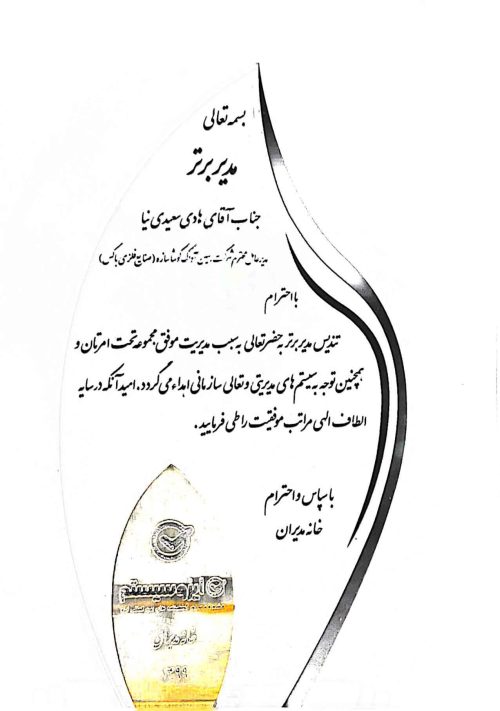 بسمه تعالی
مدیر برتر
جناب آقای هادی سعیدی نیا
مدیرعامل محترم شرکت سازه (صنایع فلزی باکس)
با احترام
تندیس مدیر برتر به حضرتعالی به سبب مدیریت موفق مجموعه تحت امرتان و
همچنین توجه به سیستم های مدیریتی و تعالی سازمانی اهداء می گردد، امید آنکه در سایه
الطاف الهی مراتب موفقیت را طی فرمایید.
با سپاس و احترام
خانه مدیران
ایزوسیستم
۱۳۹۹